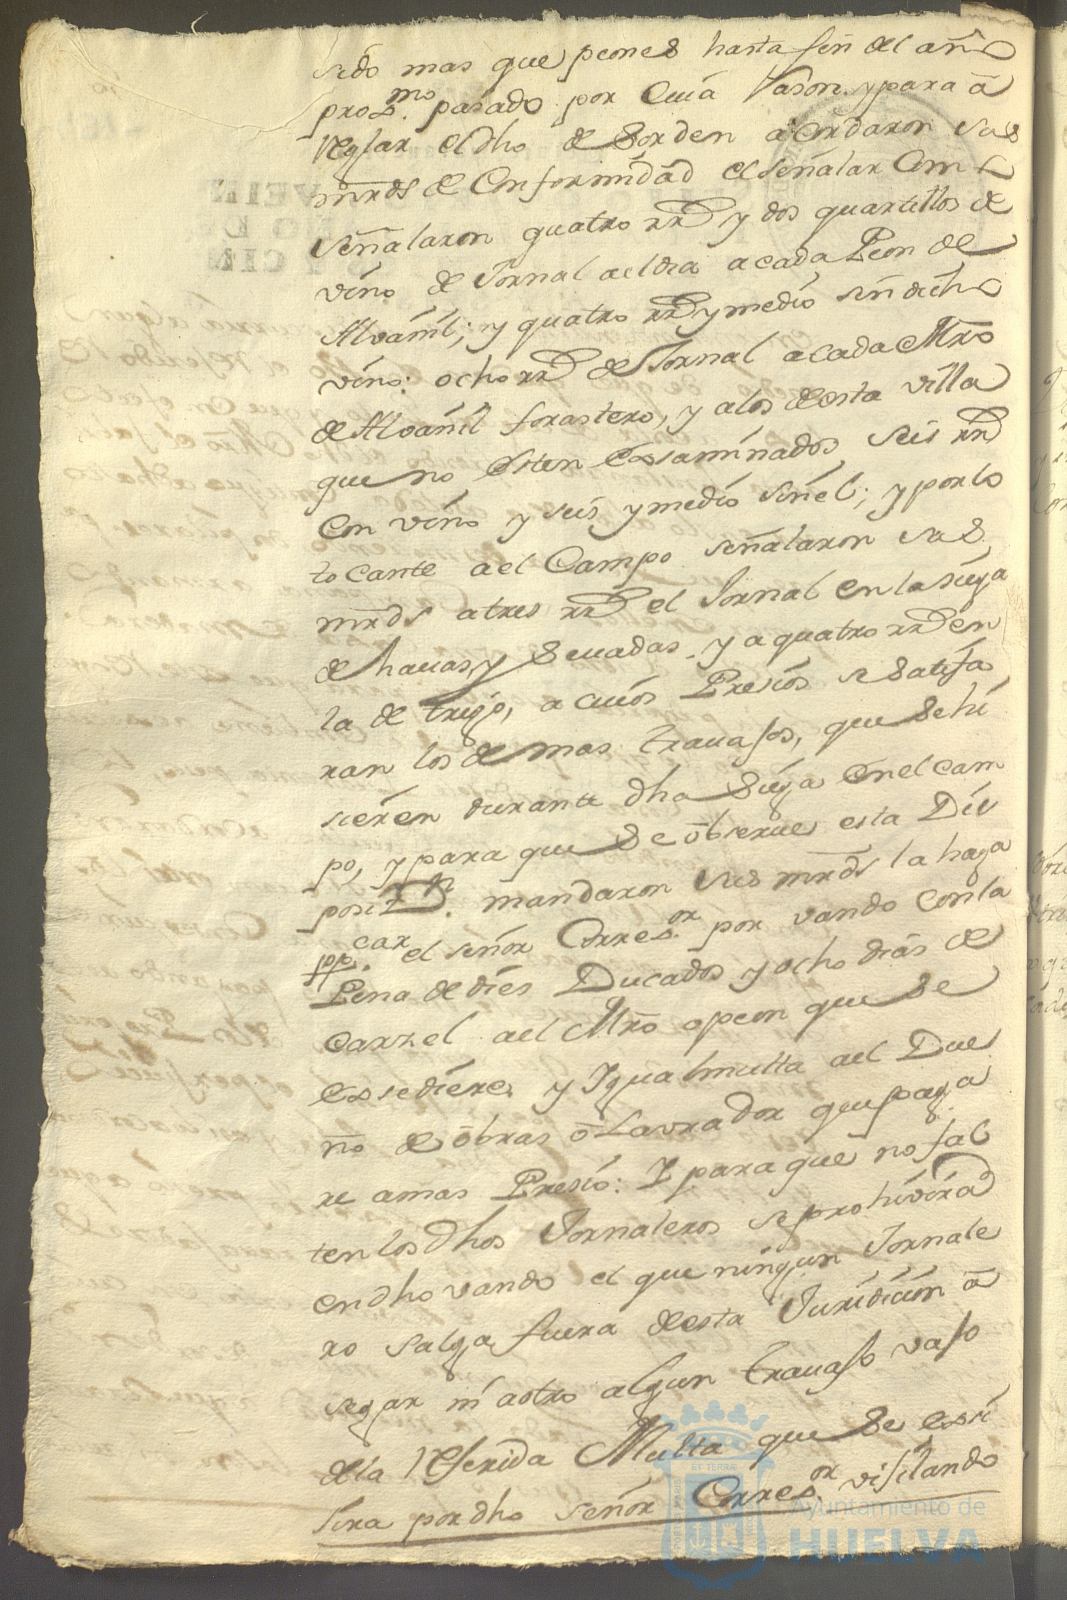 sido mas que peones hasta fin del año
proxmo. pasado por cuia rason. y para a
reglar el dho desorden acordaron sus
mrds de conformidad el señalar como
señalaron quatro rrs y dos quartillos de
vino de Jornal a el dia a cada Peon de
Alvañil; y quatro rrs y medio sin dicho
vino: ocho rrs de Jornal a cada Mro
de Alvañil forastero, y a los de esta villa
que no esten Essaminados, seis rrs
con vino y seis y medio sin el; y por lo
tocante a el Campo señalaron sus
mrds a tres rrs el Jornal en la siega
de havas, y sevadas. y a quatro rrs en
la de trigo, a cuios Presios se satisfa
ran los demas travajos, que se hi
sieren durante dha siega en el cam
po, y para que se observe esta Dis
posizon. mandaron sus mrds la haga
ppcar. el señor Corresor. por vando con la
Pena de dies Ducados y ocho dias de
Carzel a el Mro o peon que se
Essediere, y Igual multa a el Due
ño de obras o Lavrador que paga
re a mas Presio: Y para que no fal
ten los dhos Jornaleros se prohivira
en dho vando el que ningun Jornale
ro salga fuera de esta Juridicion a
segar ni a otro algun travajo vajo
de la referida Multa que se essi
jira por dho señor Corresor. visitando
Ayuntamiento de
HUELVA